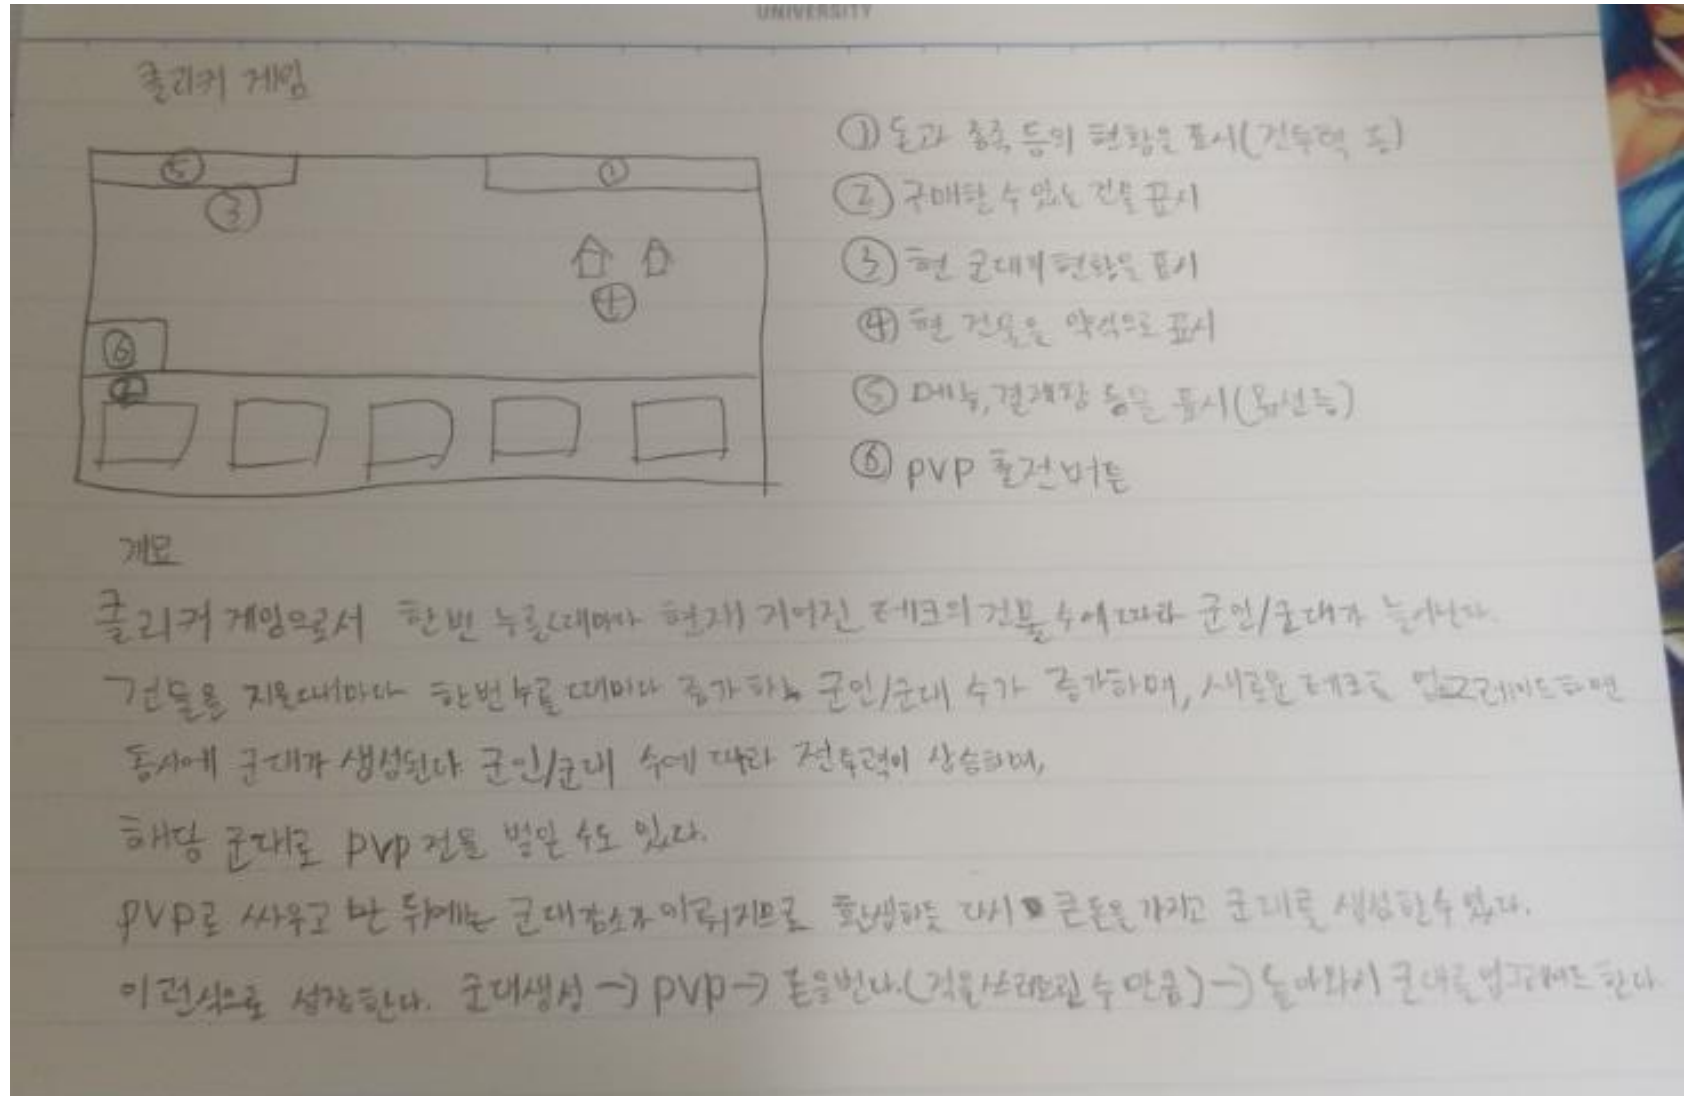 UNIVERSITY
클리커 게임
⑤ ① ③ ④ ⑥ ②
① 돈과 종족 등의 현황을 표시(전투력 등)
② 구매할 수 있는 건물 표시
③ 현 군대의 현황을 표시
④ 현 건물을 약식으로 표시
⑤ 메뉴, 결제창 등을 표시(옵션등)
⑥ PVP 출전버튼
개요
클리커 게임으로서 한번 누를때마다 현재 지어진 테크의 건물 수에 따라 군인/군대가 늘어난다.
건물을 지을때마다 한번 누를때마다 증가하는 군인/군대 수가 증가하며, 새로운 테크로 업그레이드하면
동시에 군대가 생성된다. 군인/군대 수에 따라 전투력이 상승하며,
해당 군대로 PVP전을 벌일 수도 있다.
PVP로 싸우고 난 뒤에는 군대감소가 이뤄지므로 환생하듯 다시 큰돈을 가지고 군대를 생성할수 있다.
이런식으로 성장한다. 군대생성 → PVP → 돈을번다.(적을쓰러트린 수 만큼) → 돌아와서 군대를업그레이드 한다.